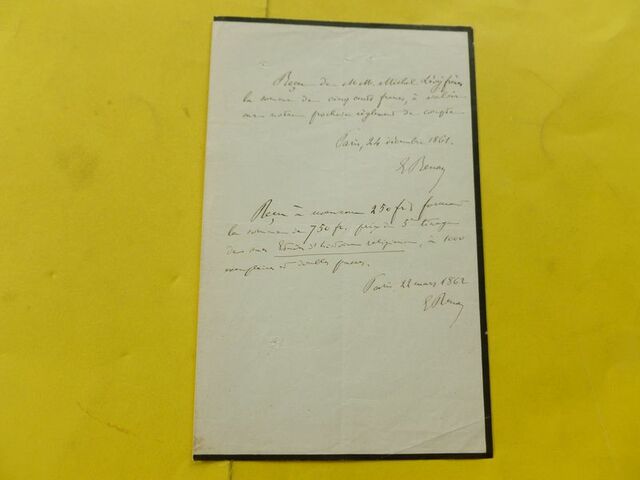 Reçu de MM. Michel Lévy frères
la somme de cinq cents francs, à valoir
sur notre prochain règlement de compte
Paris, 24 décembre 1861.
E. Renan
Reçu à nouveau 250 fr. formant
la somme de 750 fr. prix du 5e tirage
de mes Études d'histoire religieuse, à 1000
exemplaires et doubles passes.
Paris, 22 mars 1862
E. Renan